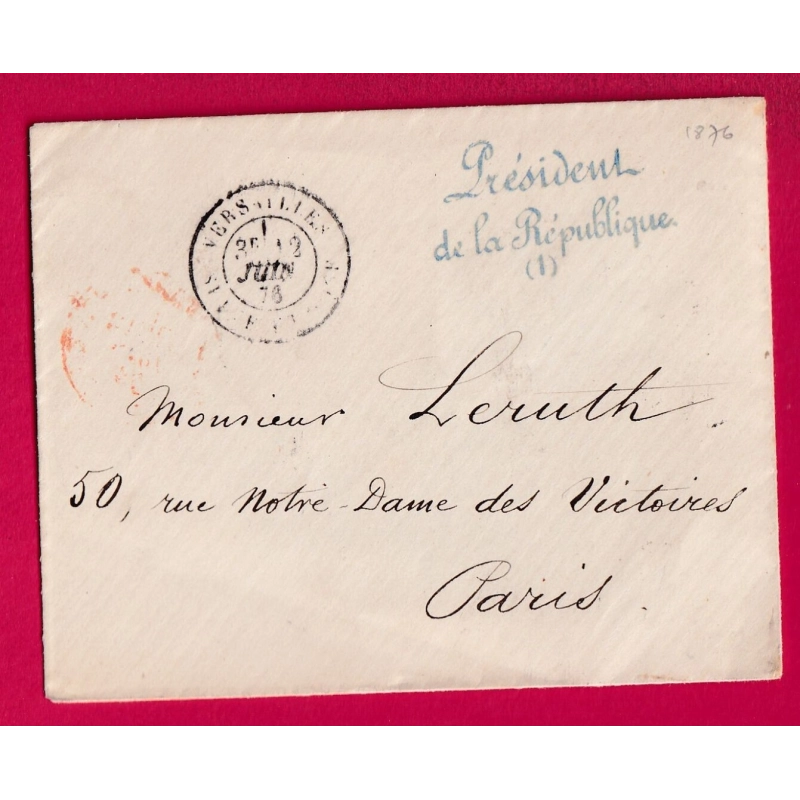 1876
Président
de la République.
(1)
VERSAILLES
3E
12
JUIN
76
Monsieur Leruth.
50, rue Notre-Dame des Victoires
Paris.